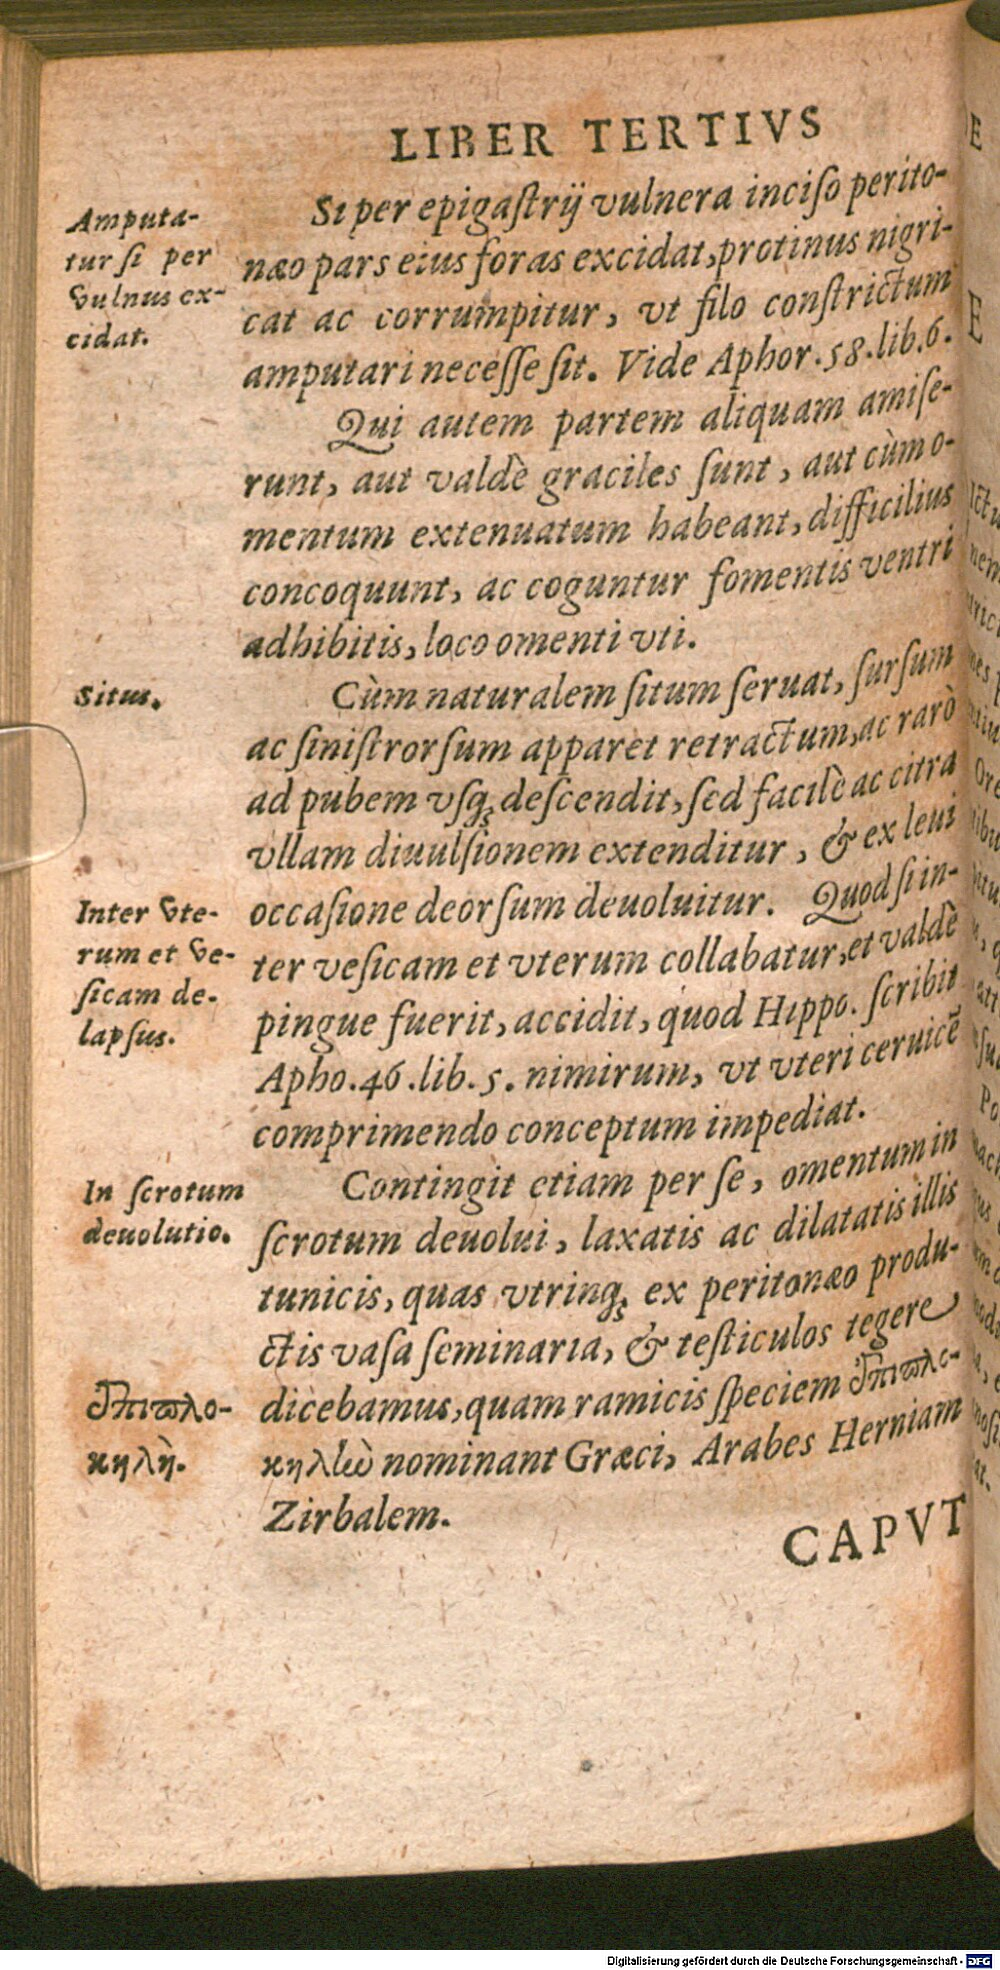 LIBER TERTIVS
Amputa-
tur si per
vulnus ex-
cidat.
Si per epigastrij vulnera inciso perito-
næo pars eius foras excidat, protinus nigri-
cat ac corrumpitur, vt filo constrictum
amputari necesse sit. Vide Aphor. 58. lib. 6.
Qui autem partem aliquam amise-
runt, aut valdè graciles sunt, aut cùm o-
mentum extenuatum habeant, difficilius
concoquunt, ac coguntur fomentis ventri
adhibitis, loco omenti vti.
Situs.
Cùm naturalem situm seruat, sursum
ac sinistrorsum apparet retractum, ac rarò
ad pubem vsq; descendit, sed facilè ac citra
vllam diuulsionem extenditur, & ex leui
occasione deorsum deuoluitur. Quod si in-
Inter vte-
rum et ve-
sicam de-
lapsus.
ter vesicam et vterum collabatur, et valdè
pingue fuerit, accidit, quod Hippo. scribit
Apho. 46. lib. 5. nimirum, vt vteri ceruicē
comprimendo conceptum impediat.
In scrotum
deuolutio.
Contingit etiam per se, omentum in
scrotum deuolui, laxatis ac dilatatis illis
tunicis, quas vtrinq; ex peritonæo produ-
ctis vasa seminaria, & testiculos tegere
ἐπιπλο-
κηλὴ.
dicebamus, quam ramicis speciem ἐπιπλο-
κηλὼ nominant Græci, Arabes Herniam
Zirbalem.
CAPVT
Digitalisierung gefördert durch die Deutsche Forschungsgemeinschaft - DFG